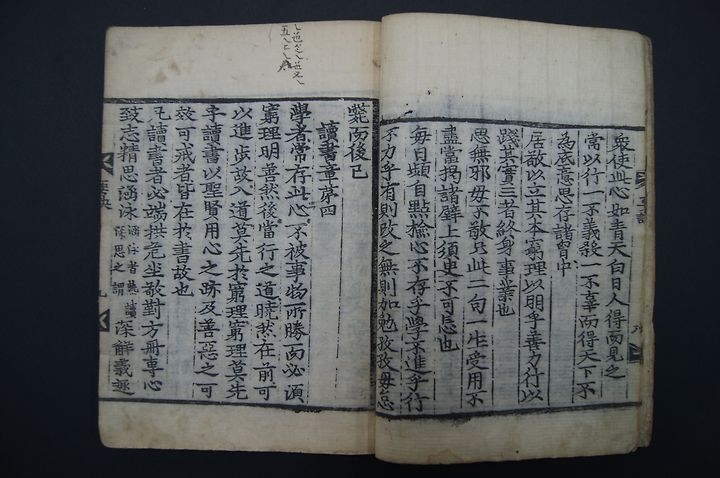 衆使此心如青天白日人得而見之
當以行一不義殺一不辜而得天下不
為底意思存諸胷中
居敬以立其本窮理以明乎善力行以
踐其實三者終身事業也
思無邪毋不敬只此二句一生受用不
盡當揭諸壁上須臾不可忘也
每日頻自點檢心不存乎學不進乎行
不力乎有則改之無則加勉孜孜毋怠
斃而後已
讀書章第四
學者常存此心不被事物所勝而必須
窮理明善然後當行之道曉然在前可
以進步故入道莫先於窮理窮理莫先
乎讀書以聖賢用心之跡及善惡之可
效可戒者皆在於書故也
凡讀書者必端拱危坐敬對方冊專心
致志精思涵泳 涵泳者熟讀深思之謂 深解義趣
要訣
九